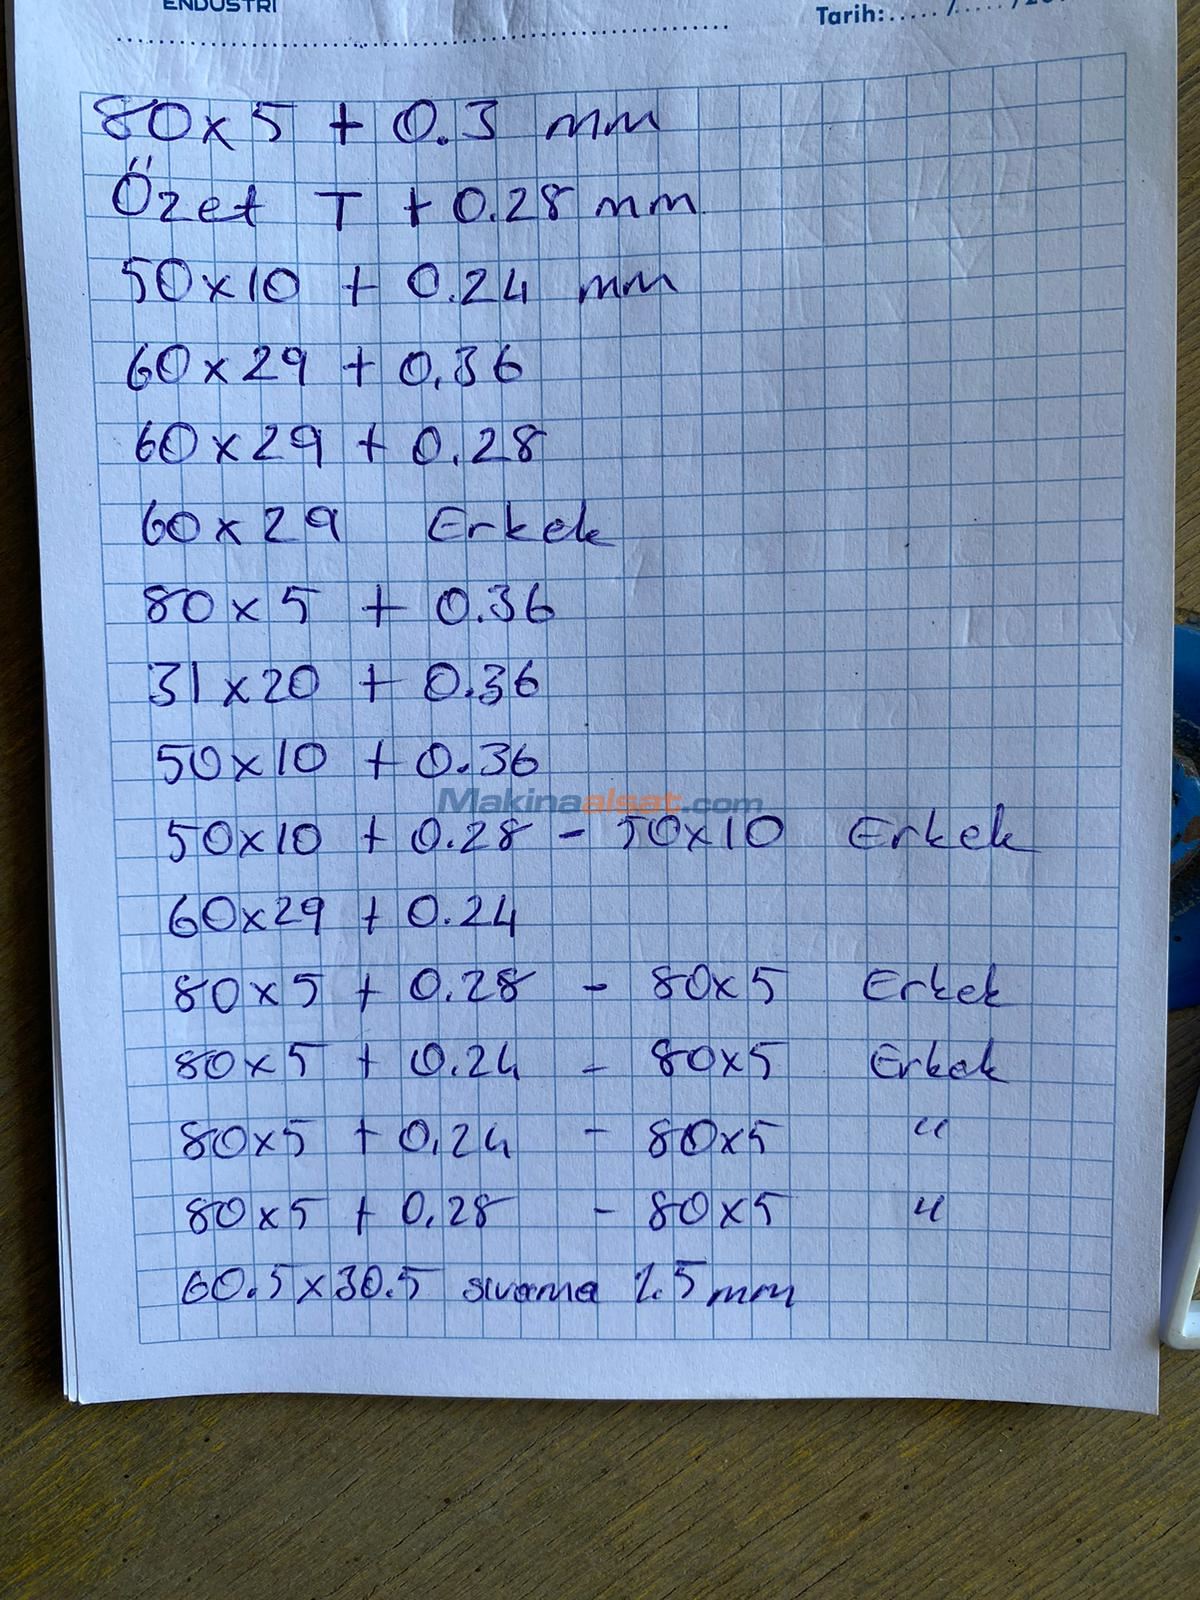 ENDÜSTRİ
Tarih:...../...../20
80x5 + 0.3 mm
Özet T + 0.28 mm
50x10 + 0.24 mm
60x29 + 0.36
60x29 + 0.28
60x29 Erkek
80x5 + 0.36
31x20 + 0.36
50x10 + 0.36
Makinaalsat.com
50x10 + 0.28 - 50x10 Erkek
60x29 + 0.24
80x5 + 0.28 - 80x5 Erkek
80x5 + 0.24 - 80x5 Erkek
80x5 + 0.24 - 80x5 "
80x5 + 0.28 - 80x5 "
60.5x30.5 sıvama 1.5 mm